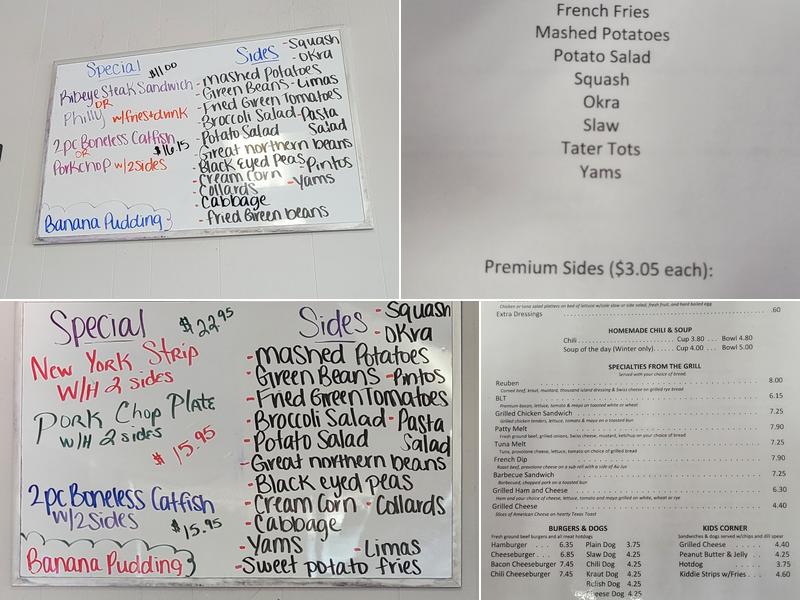 Special
$11.00
Ribeye Steak Sandwich
OR
Philly w/fries+drink
2pc Boneless Catfish
OR
$16.15
Porkchop w/2sides
Banana Pudding
Sides
-Squash
-Okra
-Mashed Potatoes
-Green Beans -Limas
-Fried Green Tomatoes
-Broccoli Salad -Pasta Salad
-Potato Salad
-Great northern beans
-Black Eyed Peas -Pintos
-Cream Corn
-Yams
-Collards
-Cabbage
-Fried Green beans
French Fries
Mashed Potatoes
Potato Salad
Squash
Okra
Slaw
Tater Tots
Yams
Premium Sides ($3.05 each):
Special
$22.95
New York Strip
W/H 2 sides
Pork Chop Plate
W/H 2 sides
$15.95
2pc Boneless Catfish
w/2sides
$15.95
Banana Pudding
Sides
-Squash
-Okra
-Mashed Potatoes
-Green Beans -Pintos
-Fried Green Tomatoes
-Broccoli Salad -Pasta Salad
-Potato Salad
-Great northern beans
-Black eyed peas
-Cream Corn -Collards
-Cabbage
-Yams -Limas
-Sweet potato fries
Chicken or tuna salad platters on bed of lettuce w/cole slaw or side salad, fresh fruit, and hard boiled egg
Extra Dressings .60
HOMEMADE CHILI & SOUP
Chili Cup 3.80 ... Bowl 4.80
Soup of the day (Winter only) Cup 4.00 ... Bowl 5.00
SPECIALTIES FROM THE GRILL
Served with your choice of bread.
Reuben 8.00
Corned beef, kraut, mustard, thousand island dressing & Swiss cheese on grilled rye bread
BLT 6.15
Premium bacon, lettuce, tomato & mayo on toasted white or wheat
Grilled Chicken Sandwich 7.25
Grilled chicken tenders, lettuce, tomato & mayo on toasted bun
Patty Melt 7.90
Fresh ground beef, grilled onions, Swiss cheese, mustard, ketchup on your choice of bread
Tuna Melt 7.25
Tuna, provolone cheese, lettuce, tomato on choice of grilled bread
French Dip 7.90
Roast beef, provolone cheese on a sub roll with a side of Au Jus
Barbecue Sandwich 7.25
Barbecued, chopped pork on a toasted bun
Grilled Ham and Cheese 6.30
Ham and your choice of cheese, lettuce, tomato and mayo grilled on white, wheat or rye
Grilled Cheese 4.40
Slices of American Cheese on hearty Texas Toast
BURGERS & DOGS
Fresh ground beef burgers and all meat hotdogs
Hamburger 6.35
Cheeseburger 6.85
Bacon Cheeseburger 7.45
Chili Cheeseburger 7.45
Plain Dog 3.75
Slaw Dog 4.25
Chili Dog 4.25
Kraut Dog 4.25
Relish Dog 4.25
Cheese Dog 4.25
KIDS CORNER
Sandwiches & dogs served w/chips and dill spear
Grilled Cheese 4.40
Peanut Butter & Jelly 4.25
Hotdog 3.75
Kiddie Strips w/Fries 4.60